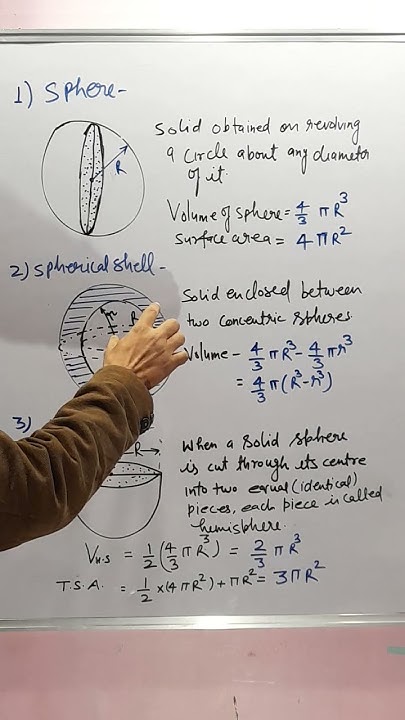 1) Sphere-
R
Solid obtained on revolving
a circle about any diameter
of it.
Volume of sphere = 4/3 πR³
Surface area = 4πR²
2) Spherical shell-
r
R
Solid enclosed between
two concentric spheres.
Volume - 4/3 πR³ - 4/3 πr³
= 4/3 π(R³-r³)
3)
R
When a solid sphere
is cut through its centre
into two equal (identical)
pieces, each piece is called
hemisphere.
V_H.S = 1/2 (4/3 πR³) = 2/3 πR³
T.S.A. = 1/2 ×(4πR²) + πR² = 3πR²